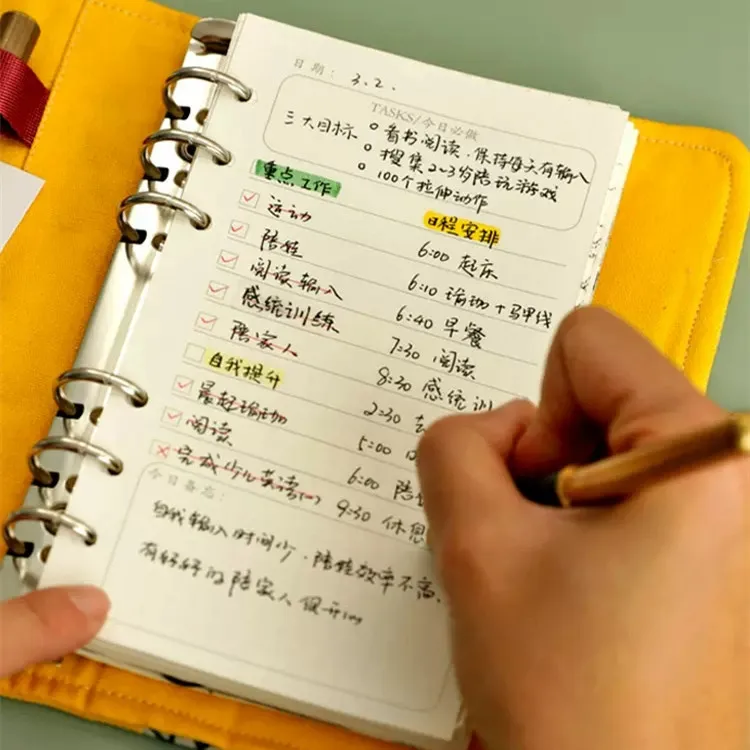 日 期： 3.2.
TASKS/今日必做
三大目标 ○ 看书阅读，保持每天有输入
○ 搜集2~3岁陪玩游戏
○ 100个拉伸动作
重点工作
日程安排
运动
6:00 起床
陪娃
6:10 瑜伽+马甲线
阅读输入
6:40 早餐
感统训练
7:30 阅读
陪家人
8:30 感统训
自我提升
2:30
晨起瑜伽
5:00
阅读
6:00 陪
完成少儿英语(1)
9:30 休息
今日备忘：
自我输入时间少，陪娃效率不高，
有好好的陪家人